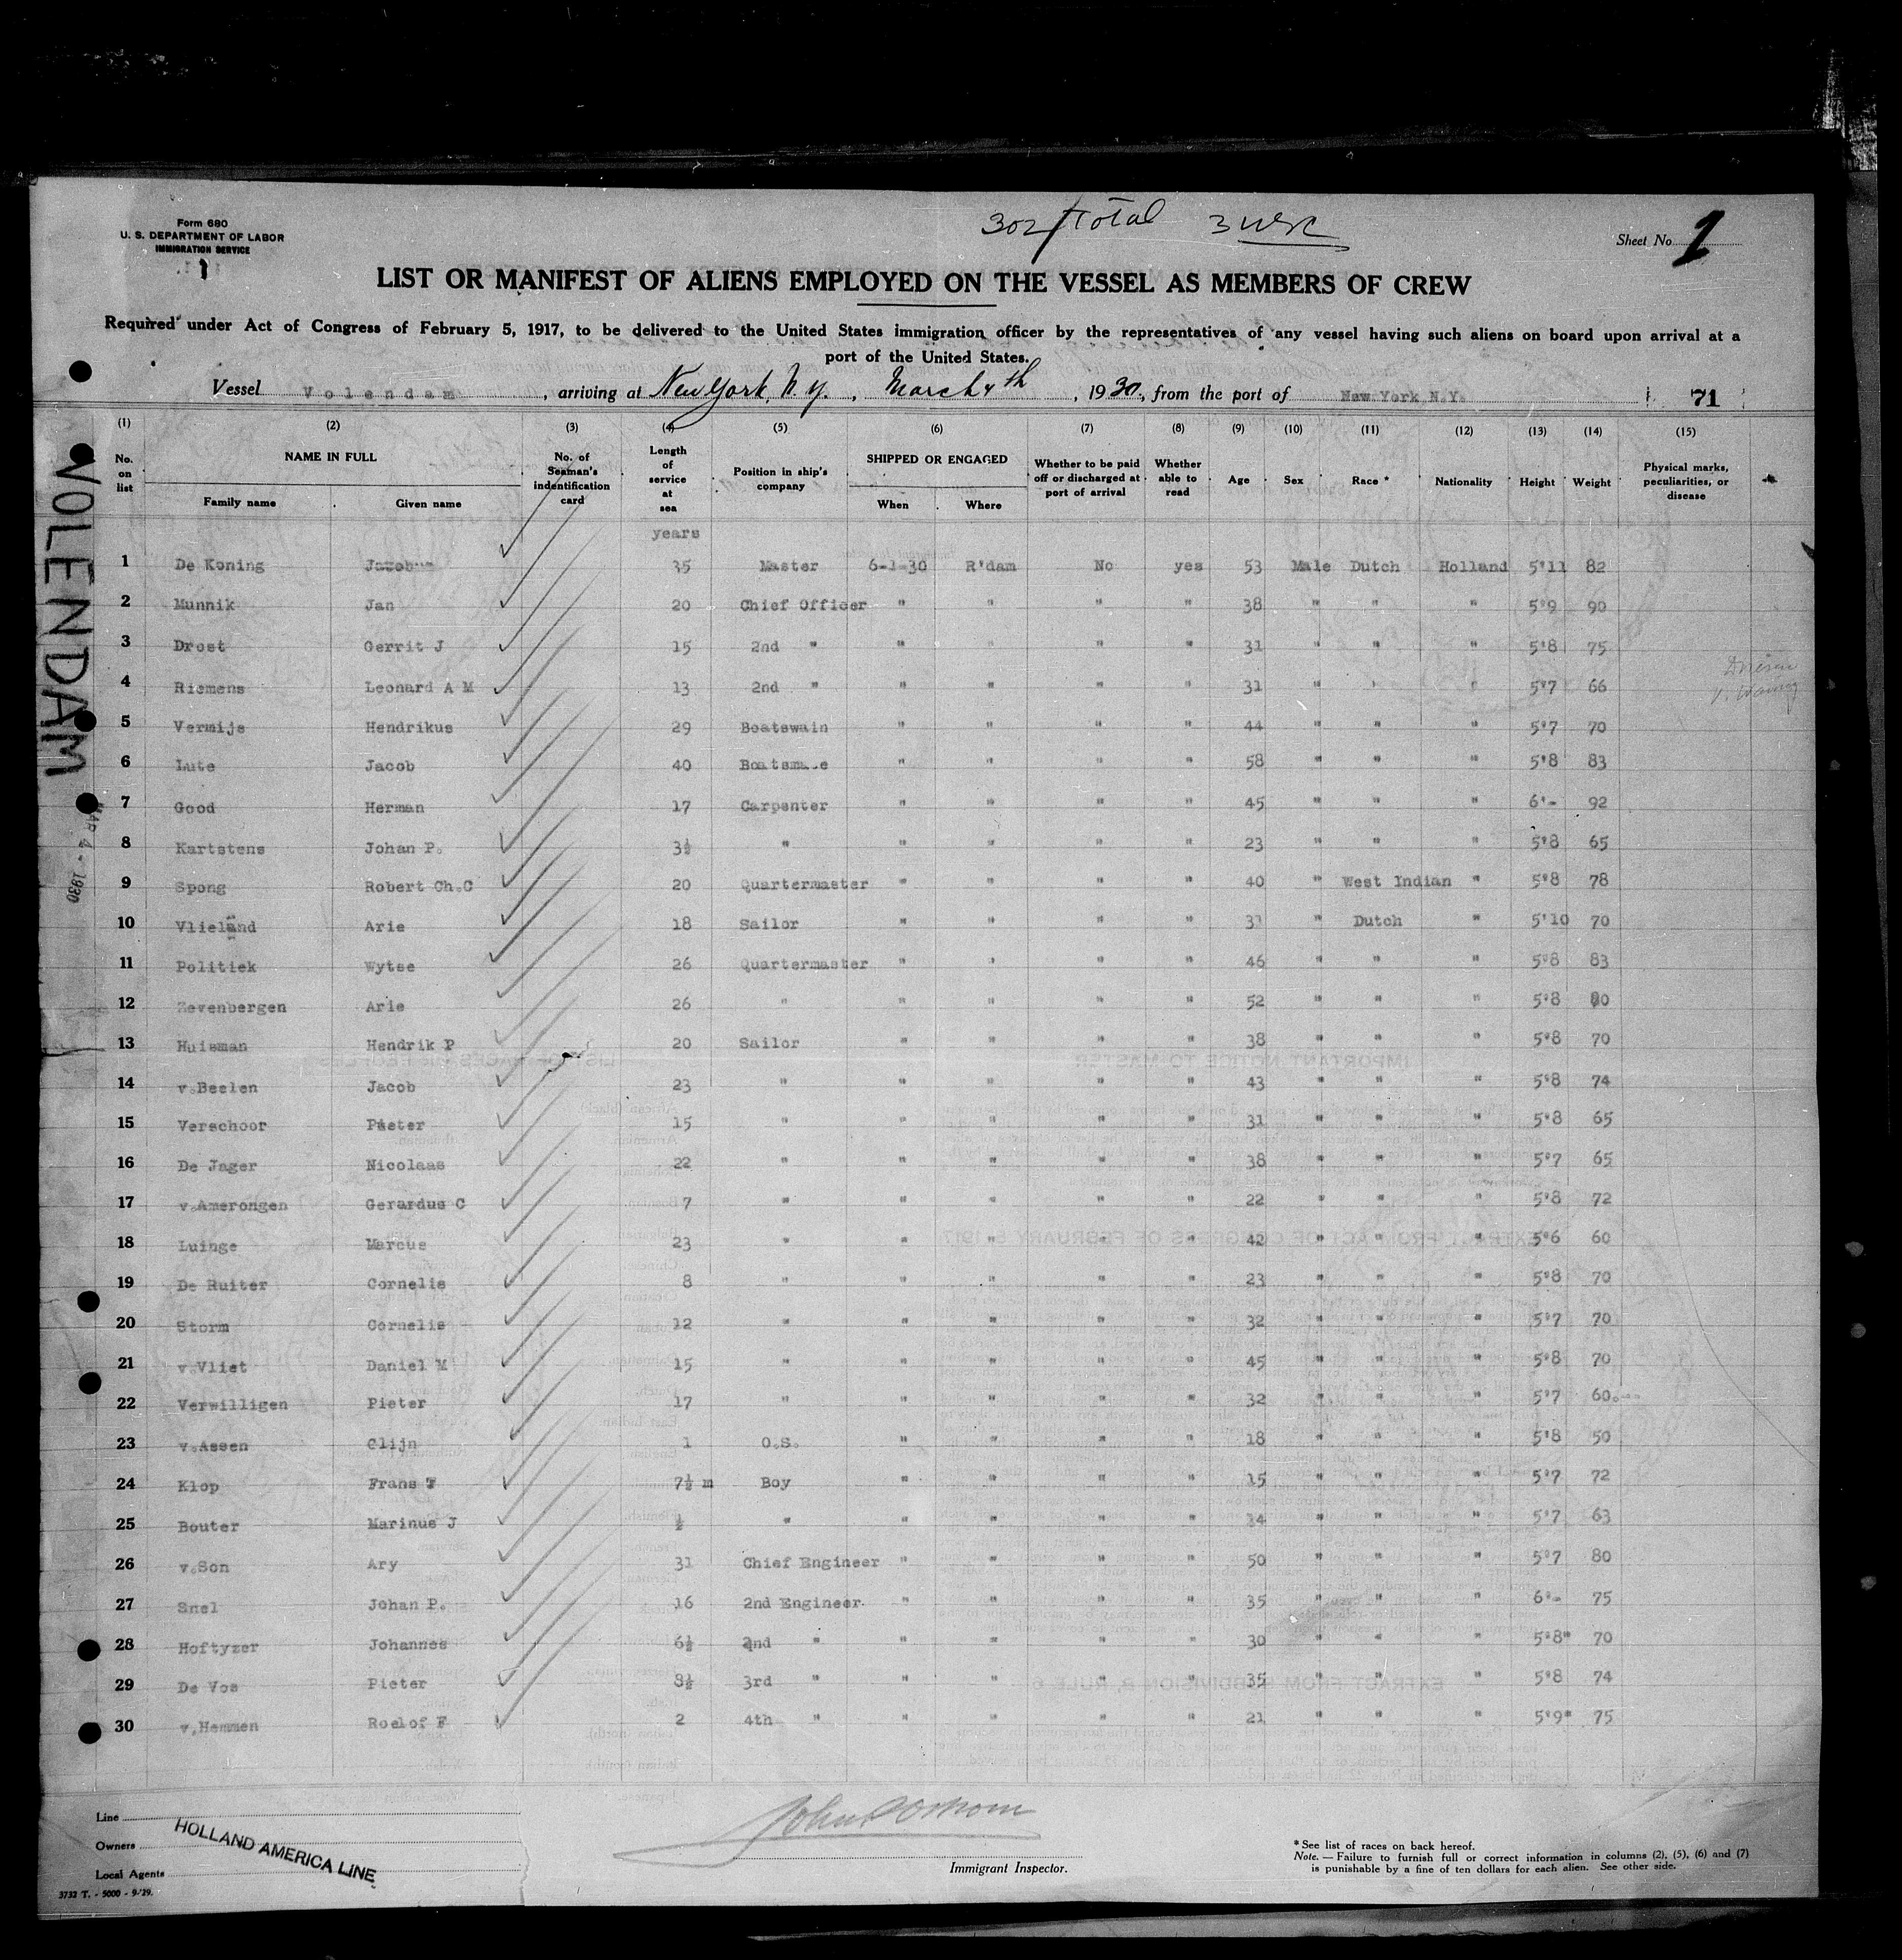 302 Total 3 usc
Form 680
U. S. DEPARTMENT OF LABOR
IMMIGRATION SERVICE
1
Sheet No. 1
LIST OR MANIFEST OF ALIENS EMPLOYED ON THE VESSEL AS MEMBERS OF CREW
Required under Act of Congress of February 5, 1917, to be delivered to the United States immigration officer by the representatives of any vessel having such aliens on board upon arrival at a
port of the United States.
Vessel Volendam, arriving at New York, N.Y., March 4th, 1930, from the port of New York N.Y. 71
(1) (2) (3) (4) (5) (6) (7) (8) (9) (10) (11) (12) (13) (14) (15)
No. on list NAME IN FULL Family name Given name No. of Seaman's indentification card Length of service at sea Position in ship's company SHIPPED OR ENGAGED When Where Whether to be paid off or discharged at port of arrival Whether able to read Age Sex Race * Nationality Height Weight Physical marks, peculiarities, or disease
years
1 De Koning Jacobus 35 Master 6-1-30 R'dam No yes 53 Male Dutch Holland 5'11 82
2 Munnik Jan 20 Chief Officer " " " " 38 " " " 5'9 90
3 Drost Gerrit J 15 2nd " " " " " 31 " " " 5'8 75
4 Riemens Leonard A M 13 2nd " " " " " 31 " " " 5'7 66
5 Vermijs Hendrikus 29 Boatswain " " " " 44 " " " 5'7 70
6 Lute Jacob 40 Boatsmate " " " " 58 " " " 5'8 83
7 Good Herman 17 Carpenter " " " " 45 " " " 6'- 92
8 Kartstens Johan P. 3½ " " " " " 23 " " " 5'8 65
9 Spong Robert Ch.C 20 Quartermaster " " " " 40 " West Indian " 5'8 78
10 Vlieland Arie 18 Sailor " " " " 31 " Dutch " 5'10 70
11 Politiek Wytse 26 Quartermaster " " " " 46 " " " 5'8 83
12 Zevenbergen Arie 26 " " " " " 52 " " " 5'8
13 Huisman Hendrik P 20 Sailor " " " " 38 " " " 5'8 70
14 v.Beelen Jacob 23 " " " " " 43 " " " 5'8 74
15 Verschoor Pieter 15 " " " " " 31 " " " 5'8 65
16 De Jager Nicolaas 22 " " " " " 38 " " " 5'7 65
17 v.Amerongen Gerardus C 7 " " " " " 22 " " " 5'8 72
18 Luinge Marcus 23 " " " " " 42 " " " 5'6 60
19 De Ruiter Cornelis 8 " " " " " 23 " " " 5'8 70
20 Storm Cornelis 12 " " " " " 32 " " " 5'7 70
21 v.Vliet Daniel M 15 " " " " " 45 " " " 5'8 70
22 Verwilligen Pieter 17 " " " " " 32 " " " 5'7 60
23 v.Assen Clijn 1 O.S. " " " " 18 " " " 5'8 50
24 Klop Frans 7½ m Boy " " " " 15 " " " 5'7 72
25 Bouter Marinus J ½ " " " " " 14 " " " 5'7 63
26 v.Son Ary 31 Chief Engineer " " " " 50 " " " 5'7 80
27 Snel Johan P. 16 2nd Engineer " " " " 35 " " " 6'- 75
28 Hoftyzer Johannes 6½ 2nd " " " " " 30 " " " 5'8" 70
29 De Vos Pieter 8½ 3rd " " " " " 35 " " " 5'8 74
30 v,Hemmen Roelof F 2 4th " " " " " 21 " " " 5'9" 75
VOLENDAM
MAR 4 - 1930
Line
Owners
Local Agents
HOLLAND AMERICA LINE
3732 T. - 5000 - 9-'29.
Immigrant Inspector.
* See list of races on back hereof.
Note.—Failure to furnish full or correct information in columns (2), (5), (6) and (7)
is punishable by a fine of ten dollars for each alien. See other side.